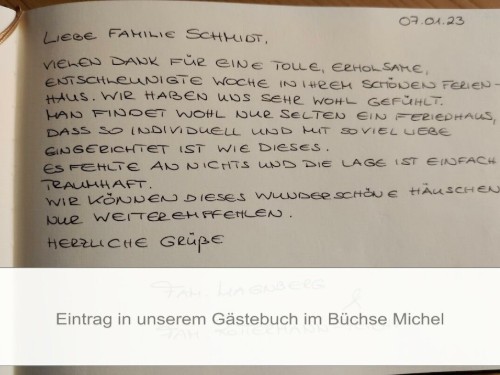 07.01.23
LIEBE FAMILIE SCHMIDT,
VIELEN DANK FÜR EINE TOLLE, ERHOLSAME,
ENTSCHLEUNIGTE WOCHE IN IHREM SCHÖNEN FERIEN-
HAUS. WIR HABEN UNS SEHR WOHL GEFÜHLT.
MAN FINDET WOHL NUR SELTEN EIN FERIENHAUS,
DASS SO INDIVIDUELL UND MIT SOVIEL LIEBE
EINGERICHTET IST WIE DIESES.
ES FEHLTE AN NICHTS UND DIE LAGE IST EINFACH
TRAUMHAFT.
WIR KÖNNEN DIESES WUNDERSCHÖNE HÄUSCHEN
NUR WEITEREMPFEHLEN.
HERZLICHE GRÜßE
FAM.
Eintrag in unserem Gästebuch im Büchse Michel
FAM.